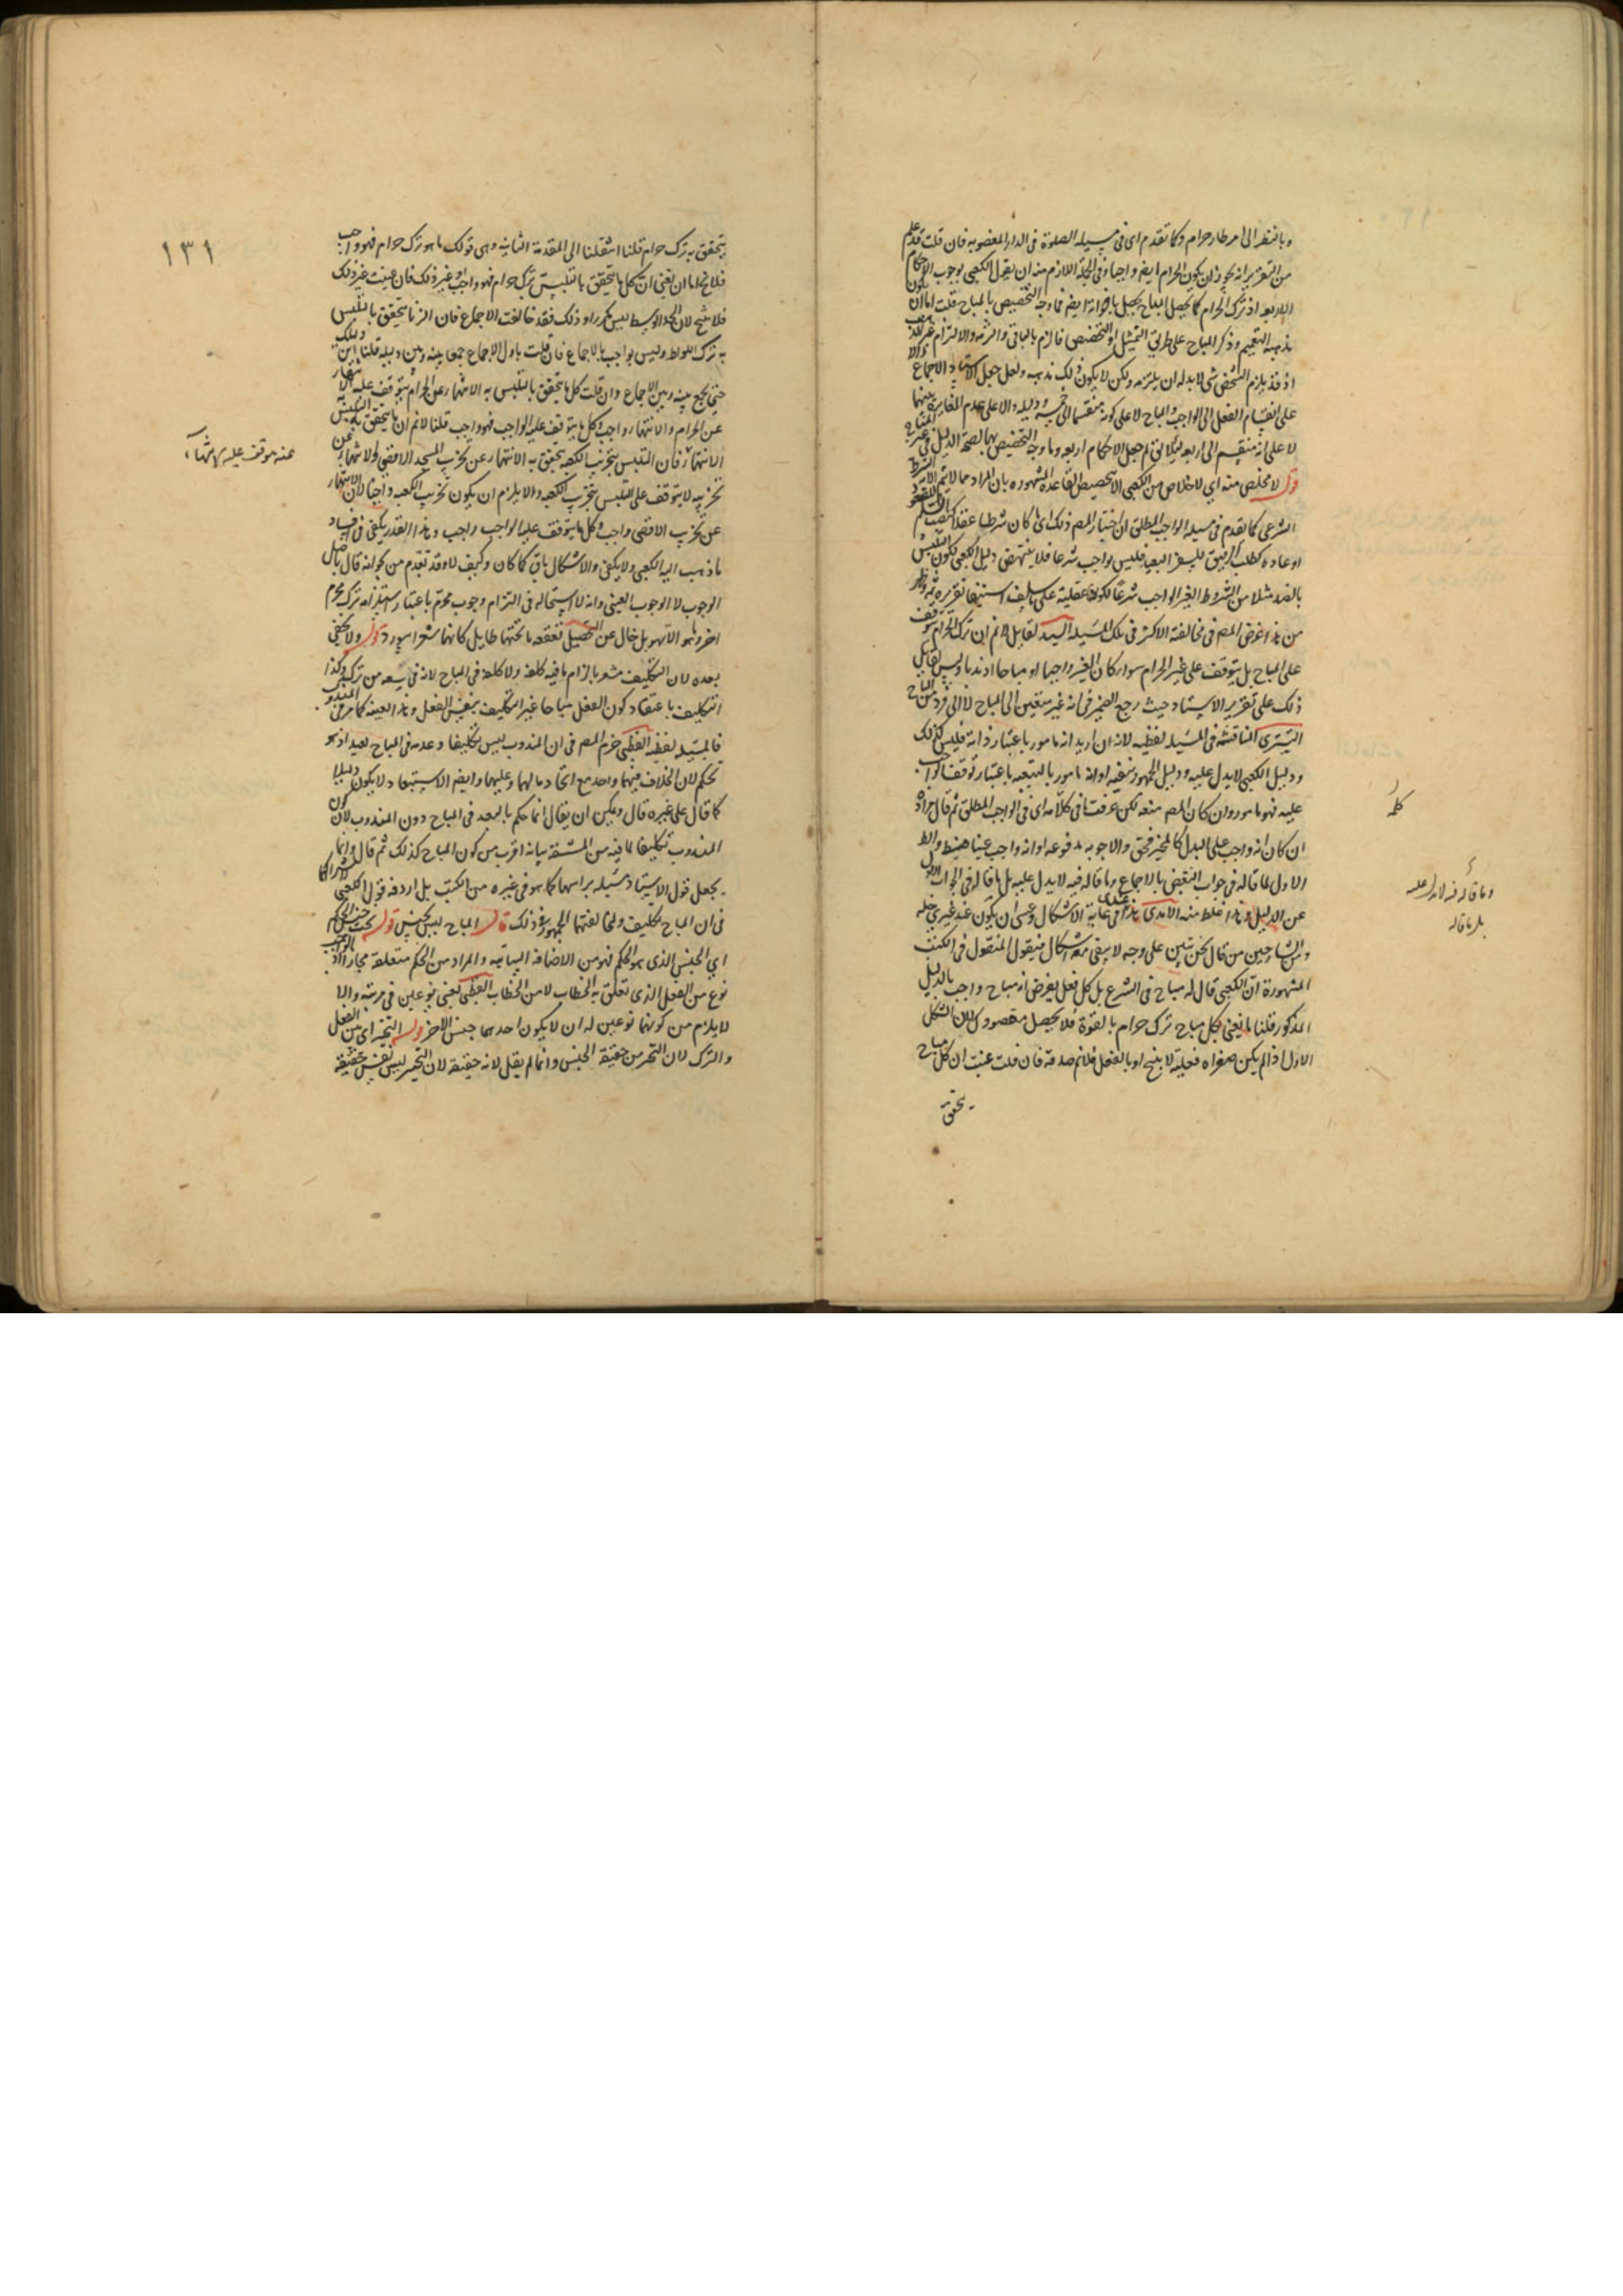 وبالنظر الى امر طار حرام وكما تقدم اى فى مسيله الصلوة فى الدار المغصوبه فان قلت قد علم
من التقرير انه يجوز ان يكون الحرام ايضا واجبا وفى الجملة اللازم منه ان يقول الكعبى بوجوب الاحكام
الاربعه اذ ترك الحرام كما يحصل بالمباح يحصل باخواته ايضا فما وجه التخصيص بالمباح قلت اما ان يكون
مذهبه التعميم وذكر المباح على طريق التمثيل او التخصيص فالزم بالباقى والتزمه والالتزام غير المذهب
اذ قد يلزم الشخص شى لابد له ان يلتزمه ولكن لا يكون ذلك مذهبه ولعل جعل الاستاد الاجماع
على انقسام الفعل الى الواجب والمباح لا على كونه منقسما الى خمسه دليله والا على عدم المغايرة بينهما
لا على انه منقسم الى اربعه لم جعل الاحكام اربعه وما وجه التخصيص بها لصحة الدليل فى غير المباح
قوله لا مخلص منه اى لا خلاص من الكعبى الا بتخصيص القاعده المشهوره بان المراد مما لا يتم الشرط
الشرعى كما تقدم فى مسيله الواجب المطلق ان اختيار المصم ذلك اى ما كان شرطا عقلا كنصب السلم
او عادة كطلب الرفيق للسفر البعيد فليس بواجب شرعا فلا ينتهض دليل الكعبى لكون التلبس
بالضد مثلا من الشروط الغير الواجب شرعا لكونها عقلية على ما سلف استيفا تقريره
من هذا غرض المصم فى مخالفته الاكثر فى تلك المسيله السيد لقايل لا نم ان ترك الحرام يتوقف
على المباح بل يتوقف على غير الحرام سوا كان الغير واجبا او مباحا او ندبا وليس لقايل
ذلك على تقرير الاستاد حيث رجع الضمير فى انه غير متعين الى المباح لا الى فرد من المباح
التسترى المناقشة فى المسيله لفظيه لانه ان اريد انه مامور باعتبار ذاته فليس كذلك
ودليل الكعبى لا يدل عليه ودليل الجمهور ينفيه او انه مامور بالتبعيه باعتبار توقف الواجب
عليه فهو مامور وان كان المصم منعه لكن عرفت ما فى كلامه اى فى الواجب المطلق ثم قال مراده
ان كان انه واجب على البدل كالمخير فحق والاجوبه مدفوعه او انه واجب عينا
الاول لما قاله فى جواب النقض بالاجماع وما قاله فيه لا يدل عليه بل ما قاله فى الجواب الاول
عن الدليل وهذا غلط منه الامدى هذا عندى فى غاية الاشكال وعسى ان يكون عند غيرى حله
ومن الشارحين من قال نحن نبين على وجه لا يبقى معه اشكال فنقول المنقول فى الكتب
المشهورة ان الكعبى قال لا مباح فى الشرع بل كل فعل يفرض انه مباح واجب بالدليل
المذكور قلنا ما نعنى بكل مباح ترك حرام بالقوة فلا يحصل مقصودك لان الشكل
الاول اذا لم يكن صغراه فعلية لا ينتج او بالفعل فلا نم صدقه فان قلت عنيت ان كل مباح
يتحقق
كلمه
وما قاله فيه لا يدل عليه
بل ما قاله
١٣١
يتحقق به ترك حرام قلنا انتقلنا الى المقدمة الثانيه وهى قولك ما هو ترك حرام فهو واجب
فلا يخ اما ان تعنى ان كل ما يتحقق بالتلبس به ترك حرام فهو واجب او غير ذلك فان عنيت غير ذلك
فلا ينتج لان الحد الاوسط ليس بمكرر او ذلك فقد خالفت الاجماع فان الزنا يتحقق بالتلبس
به ترك اللواط وليس بواجب بالاجماع فان قلت ياول الاجماع جمعا بينه وبين دليله قلنا اين دليلك
حتى يجمع بينه وبين الاجماع وان قلت كل ما يتحقق بالتلبس به الانتهاء عن الحرام يتوقف عليه الانتهاء
عن الحرام والانتهاء واجب وكل ما يتوقف عليه الواجب فهو واجب قلنا لا نم ان ما يتحقق بالتلبس به
الانتهاء فان التلبس بتخريب الكعبه يتحقق به الانتهاء عن تخريب المسجد الاقصى ولا انتهاء عن
تخريبه لا يتوقف على التلبس بتخريب الكعبه والا يلزم ان يكون تخريب الكعبه واجبا لان الانتهاء
عن تخريب الاقصى واجب وكل ما يتوقف عليه الواجب واجب وهذا القدر يكفى فى فساد
ما ذهب اليه الكعبى ولا يكفى والاشكال باق كما كان وكيف لا وقد تقدم من نحو انه قال باصل
الوجوب لا الوجوب العينى وانه لا استحاله فى التزام وجوب محرم باعتبار استلزامه ترك محرم
اخر وما هو الا تهويل خال عن التحصيل تقعقعه ما تحتها طايل كانها شعر ابيوردى قوله ولا يخفى
بعده لان التكليف مشعر بالزام ما فيه كلفه ولا كلفه فى المباح لانه فى سعه من تركه وكذا
التكليف باعتقاد كون الفعل مباحا غير التكليف بنفس الفعل وهذا بعينه كما مر فى المندوب
فالمسيله لفظيه القطبى جزم المصم فى ان المندوب ليس تكليفا وعده فى المباح بعيد اذ هو
تحكم لان الخلاف فيهما واحد مع اتحاد ما لهما وعليهما وايضا الاستبعاد لا يكون دليلا
كما قال على غيره قال ويمكن ان يقال انما حكم بالبعد فى المباح دون المندوب لان كون
المندوب تكليفا لما فيه من المشقة بيانه اقرب من كون المباح كذلك ثم قال وانما
يجعل قول الاستاد مسيله براسها كما هو فى غيره من الكتب بل اردفه قول الكعبى لاشتراكهما
فى ان المباح تكليف ولمخالفتهما الجمهور فى ذلك قال المباح ليس بجنس قوله تحت جنس الحكم
اى الجنس الذى هو الحكم فهو من الاضافة البيانيه والمراد من الحكم متعلقه مجازا اذ الواجب
نوع من الفعل الذى تعلق به الخطاب لا من الخطاب القطبى يعنى نوعين فى مرتبه والا
لا يلزم من كونهما نوعين له ان لا يكون احدهما جنس الاخر قوله التخير اى بين الفعل
والترك لان التخير من حقيقة الجنس وانما لم يقل لانه حقيقة لان التخير ليس نفس حقيقة
عنه موقف عليه